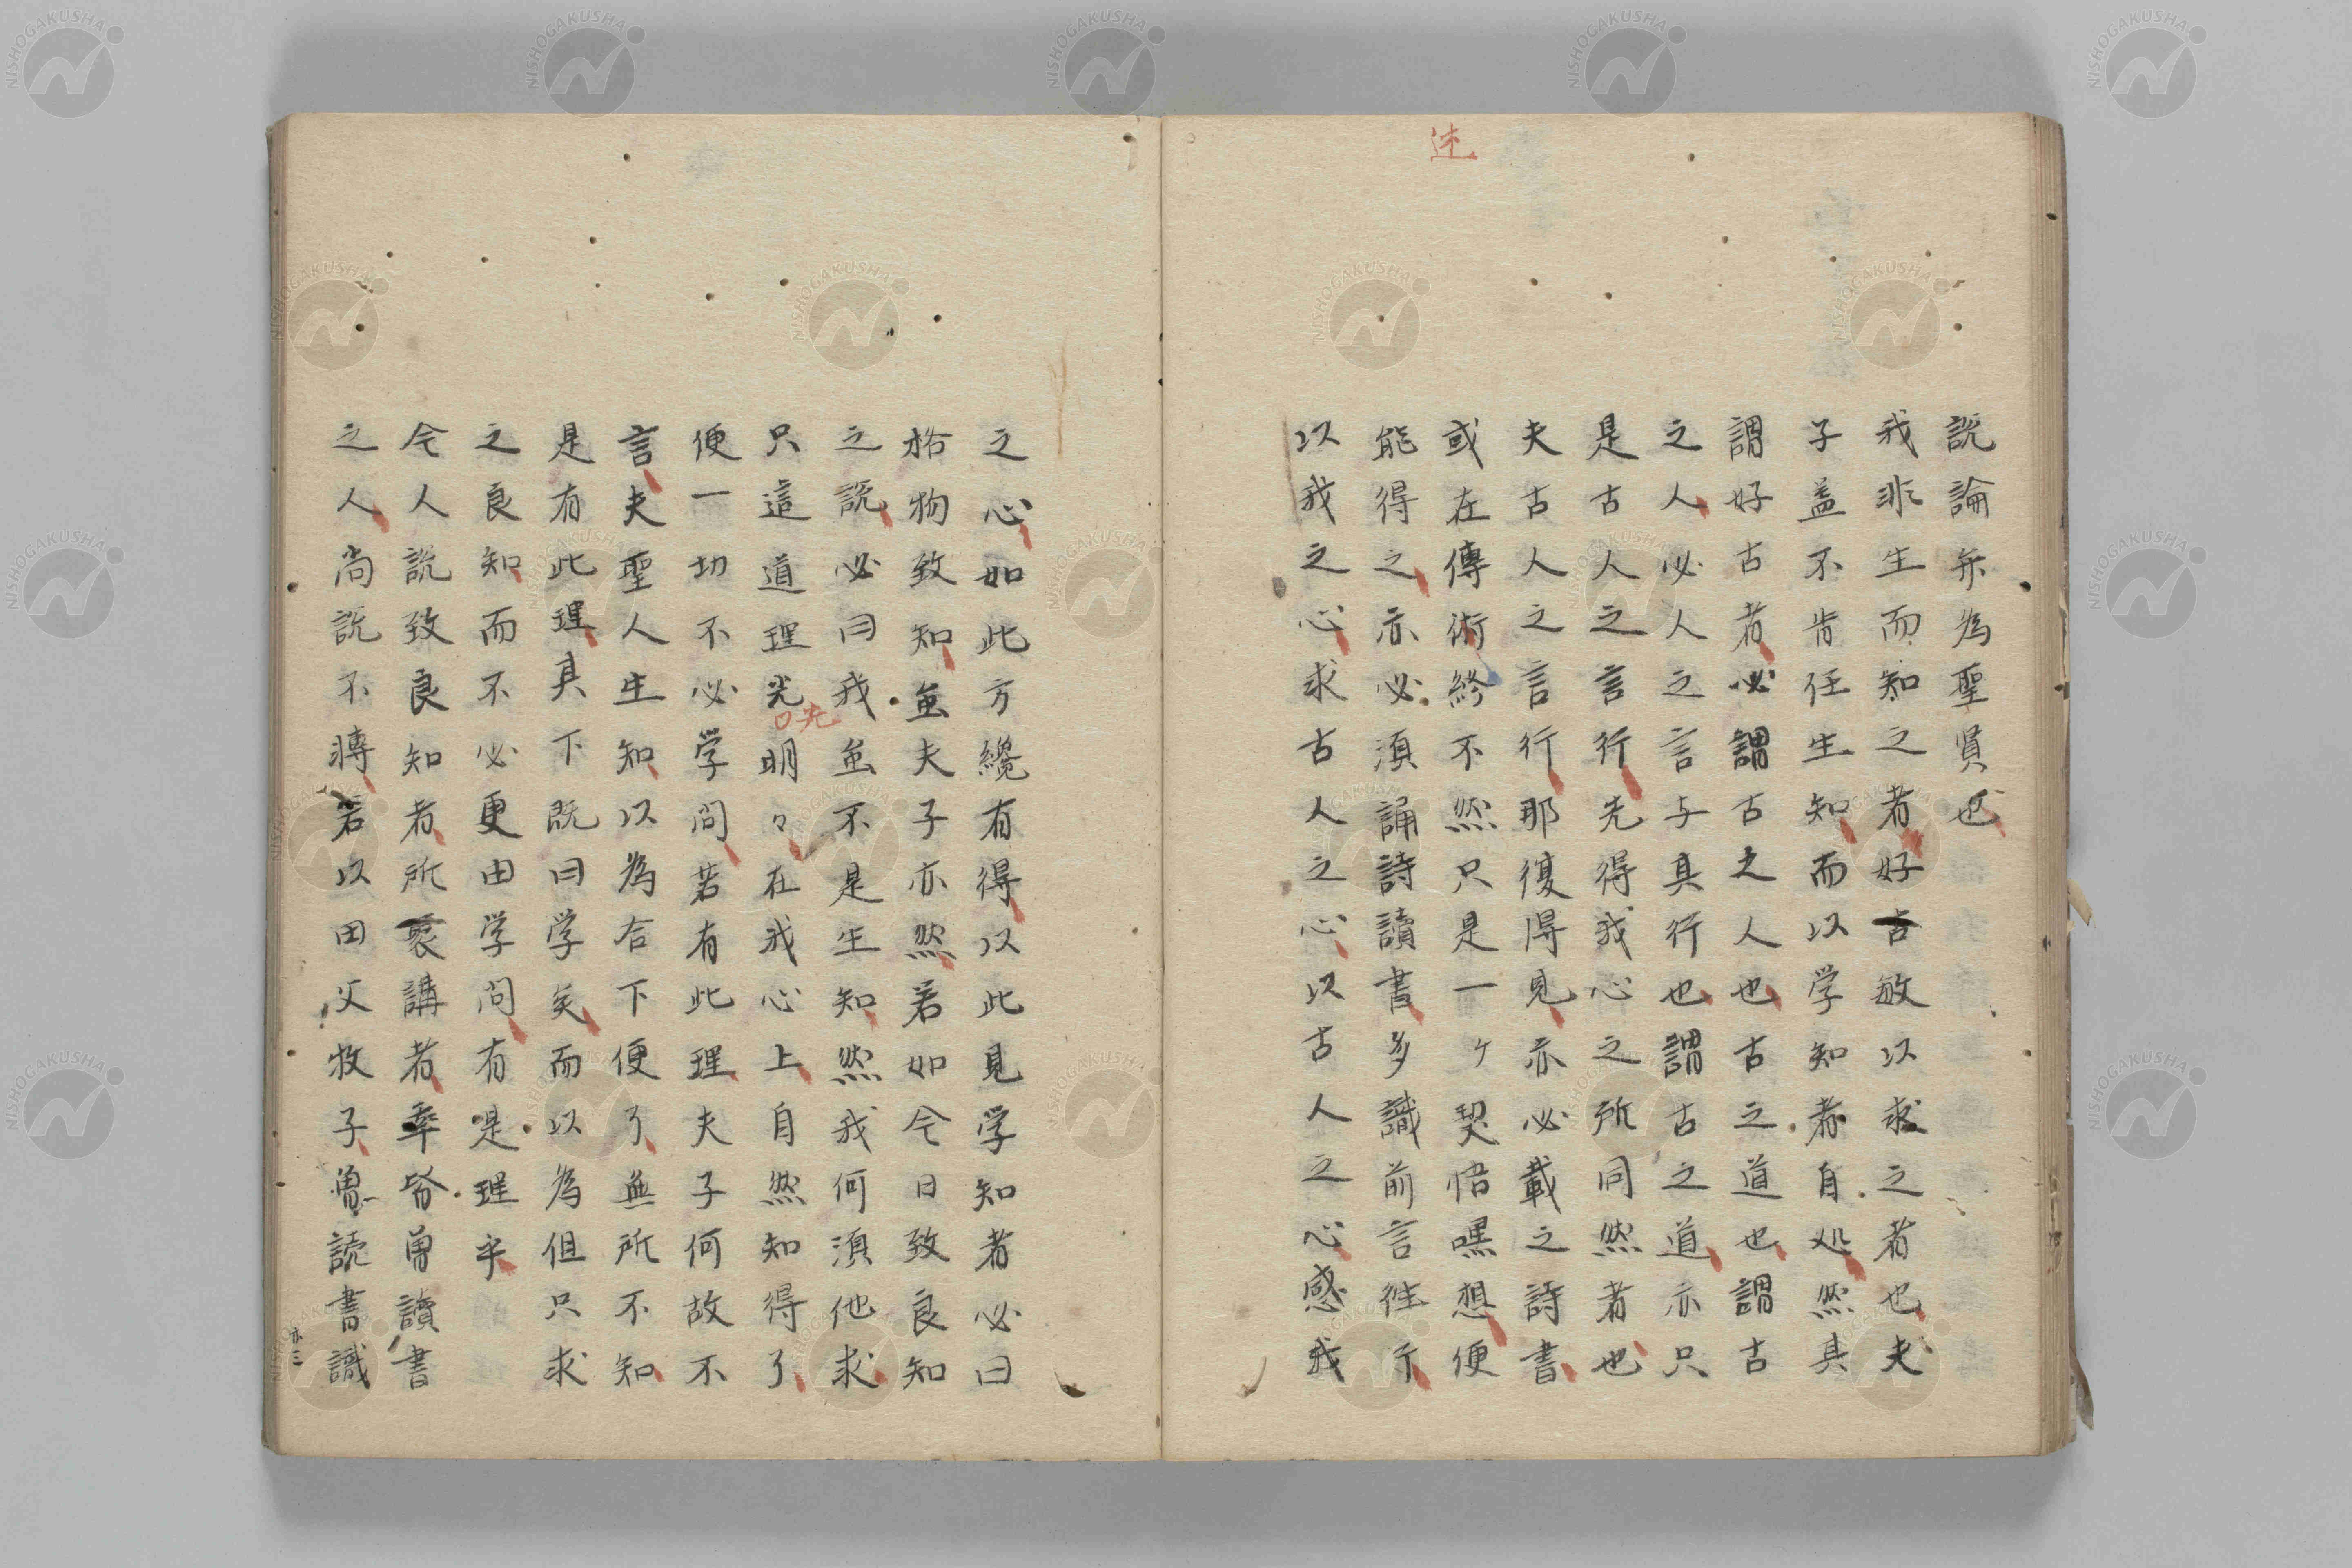 述
説論亦為聖賢也
我非生而知之者好古敏以求之者也夫
子盖不肯任生知而以学知者自処然其
謂好古者必謂古之人也古之道也謂古
之人必人之言与其行也謂古之道亦只
是古人之言行先得我心之所同然者也
夫古人之言行那復得見亦必載之詩書
或在傳術終不然只是一ケ契悟嘿想便
能得之亦必須誦詩讀書多識前言徃行
以我之心求古人之心以古人之心感我
之心如此方纔有得以此見学知者必曰
格物致知虽夫子亦然若如今日致良知
之説必曰我虽不是生知然我何須他求
只這道理光明々在我心上自然知得了
○先
便一切不必学問若有此理夫子何故不
言夫聖人生知以為合下便了無所不知
是有此理其下既曰学矣而以為但只求
之良知而不必更由学問有是理乎
今人説致良知者所聚講者率皆曽讀書
之人尚説不轉若以田父牧子曽読書識
亦三
NISHOGAKUSHA